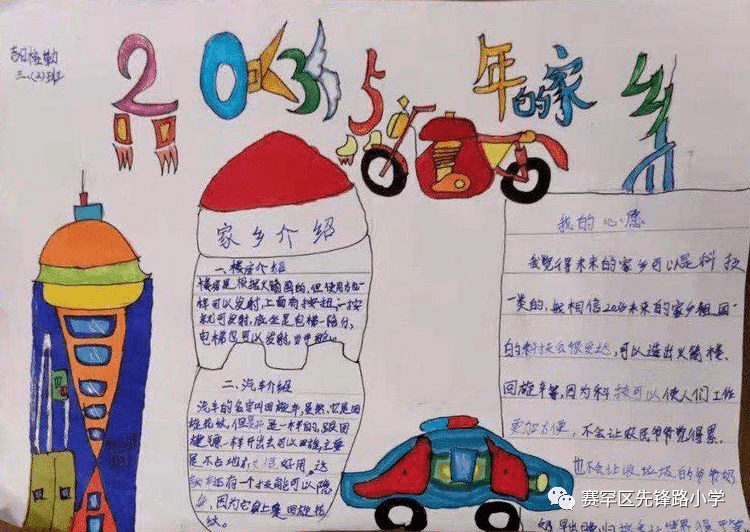 吉日格勒
三.(2)班
2035年的家乡
家乡介绍
一.楼房介绍
楼房是根据火箭画的,但使用方式一
样可以发射,上面有按扭,一按
就可发射,底坐是电梯一陪分,
电梯也可以发射,
二.汽车介绍
汽车的名字叫回旋车,虽然它是回
是一样的,跟回
旋镖一样开出去可以回旋,主要
是不占地方 好用。这
有一个技能可以隐
身,因为它身上
我的心愿
我觉得未来的家乡可以是科技
一类的,我相信2035未来的家乡祖国
的科技会很发达,可以造出火箭楼、
回旋车等,因为科技可以使人们工作
更加方便,不会让农民爷爷觉得累,
也不会让收垃圾的爷爷奶
奶早出晚归
赛罕区先锋路小学